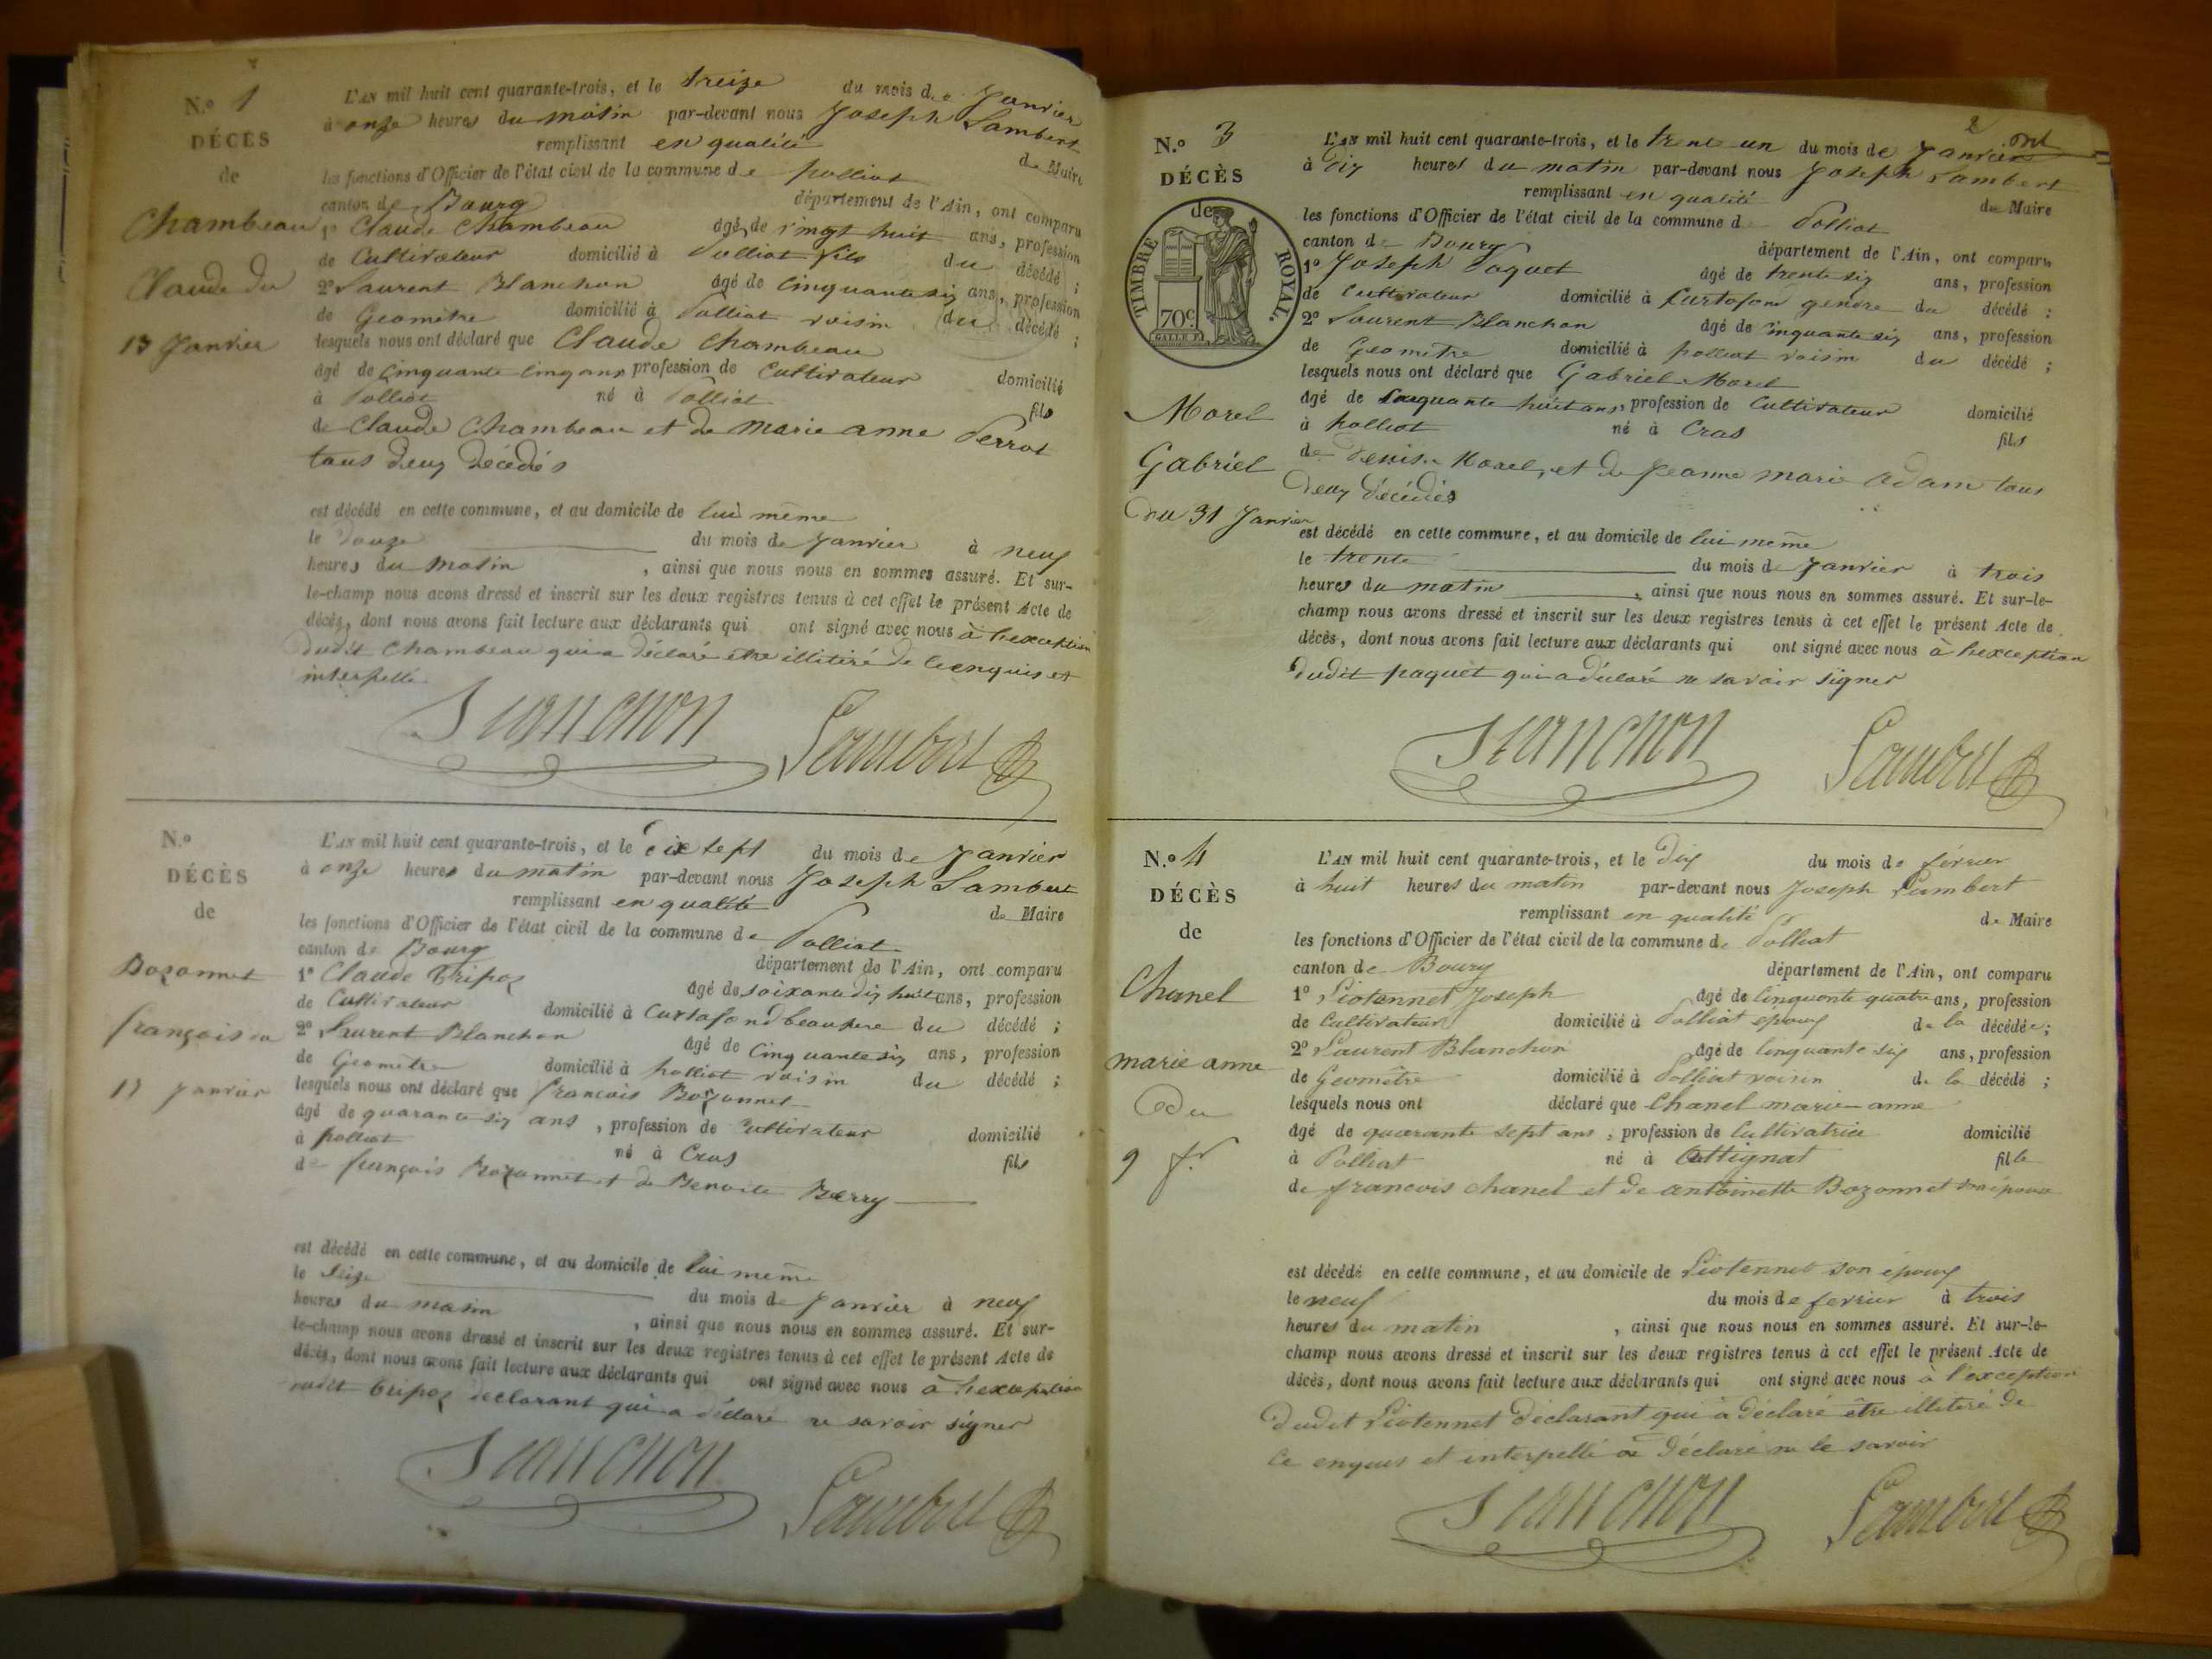 N.o 1
DÉCÈS
de
Chambeau
Claude du
13 Janvier
L'AN mil huit cent quarante-trois, et le treize du mois de Janvier
à onze heures du matin par-devant nous Joseph Lambert
remplissant en qualité de Maire
les fonctions d'Officier de l'état civil de la commune de polliat
canton de Bourg département de l'Ain, ont comparu
1o Claude Chambeau âgé de vingt huit ans, profession
de Cultivateur domicilié à Polliat fils du décédé ;
2o Laurent Blanchon âgé de Cinquante six ans, profession
de Geomètre domicilié à Polliat voisin du décédé ;
lesquels nous ont déclaré que Claude Chambeau
âgé de Cinquante Cinq ans, profession de Cultivateur domicilié
à Polliat né à Polliat fils
de Claude Chambeau et de marie anne Perrot
tous deux décédés
est décédé en cette commune, et au domicile de lui même
le Douze du mois de Janvier à neuf
heures du matin , ainsi que nous nous en sommes assuré. Et sur-
le-champ nous avons dressé et inscrit sur les deux registres tenus à cet effet le présent Acte de
décès, dont nous avons fait lecture aux déclarants qui ont signé avec nous à l'exception
dudit Chambeau qui a déclaré etre illitéré de ce enquis et
interpellé
Blanchon Lambert
N.o
DÉCÈS
de
Bozonnet
françois du
17 Janvier
L'AN mil huit cent quarante-trois, et le dix sept du mois de Janvier
à onze heures du matin par-devant nous Joseph Lambert
remplissant en qualité de Maire
les fonctions d'Officier de l'état civil de la commune de Polliat
canton de Bourg département de l'Ain, ont comparu
1o Claude Tripoz âgé de soixante dix huit ans, profession
de Cultivateur domicilié à Curtafond beaupere du décédé ;
2o Laurent Blanchon âgé de Cinquante six ans, profession
de Geomètre domicilié à polliat voisin du décédé ;
lesquels nous ont déclaré que françois Bozonnet
âgé de quarante six ans , profession de Cultivateur domicilié
à polliat né à Cras fils
de françois Bozonnet et de Benoite Berry
est décédé en cette commune, et au domicile de lui même
le seize du mois de Janvier à neuf
heures du matin , ainsi que nous nous en sommes assuré. Et sur-
le-champ nous avons dressé et inscrit sur les deux registres tenus à cet effet le présent Acte de
décès, dont nous avons fait lecture aux déclarants qui ont signé avec nous à l'exception
dudit tripoz declarant qui a déclaré ne savoir signer
Blanchon Lambert
2
N.o 3
DÉCÈS
de
TIMBRE ROYAL.
70c.
Morel
Gabriel
du 31 Janvier
L'AN mil huit cent quarante-trois, et le trente un du mois de Janvier
à Dix heures du matin par-devant nous Joseph Lambert
remplissant en qualité de Maire
les fonctions d'Officier de l'état civil de la commune de Polliat
canton de Bourg département de l'Ain, ont comparu
1o Joseph Paquet âgé de trente six ans, profession
de Cultivateur domicilié à Curtafond gendre du décédé ;
2o Laurent Blanchon âgé de Cinquante six ans, profession
de Geomètre domicilié à polliat voisin du décédé ;
lesquels nous ont déclaré que Gabriel Morel
âgé de Cinquante huit ans, profession de Cultivateur domicilié
à polliat né à Cras fils
de Denis Morel, et de Jeanne marie adam tous
deux décédés
est décédé en cette commune, et au domicile de lui même
le trente du mois de Janvier à trois
heures du matin , ainsi que nous nous en sommes assuré. Et sur-le-
champ nous avons dressé et inscrit sur les deux registres tenus à cet effet le présent Acte de
décès, dont nous avons fait lecture aux déclarants qui ont signé avec nous à l'exception
dudit paquet qui a déclaré ne savoir signer
Blanchon Lambert
N.o 4
DÉCÈS
de
Chanel
marie anne
du
9 fr
L'AN mil huit cent quarante-trois, et le dix du mois de février
à huit heures du matin par-devant nous Joseph Lambert
remplissant en qualité de Maire
les fonctions d'Officier de l'état civil de la commune de Polliat
canton de Bourg département de l'Ain, ont comparu
1o Liotennet Joseph âgé de Cinquante quatre ans, profession
de Cultivateur domicilié à Polliat epoux de la décédée ;
2o Laurent Blanchon âgé de Cinquante six ans, profession
de Geomètre domicilié à Polliat voisin de la décédé ;
lesquels nous ont déclaré que Chanel marie anne
âgé de quarante sept ans , profession de Cultivatrice domicilié
à Polliat né à Attignat fille
de francois chanel et de antoinette Bozonnet
est décédé en cette commune, et au domicile de Liotennet son époux
le neuf du mois de fevrier à trois
heures du matin , ainsi que nous nous en sommes assuré. Et sur-le-
champ nous avons dressé et inscrit sur les deux registres tenus à cet effet le présent Acte de
décès, dont nous avons fait lecture aux déclarants qui ont signé avec nous à l'exception
dudit Liotennet déclarant qui a déclaré être illitéré de
ce enquis et interpellé a déclaré ne le savoir
Blanchon Lambert